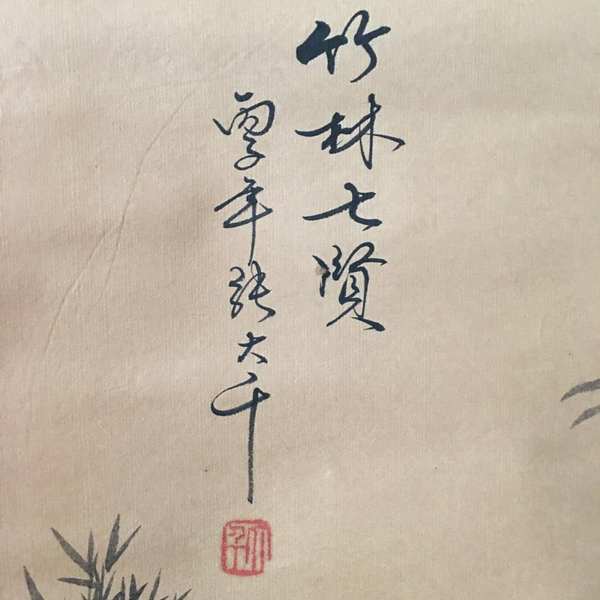 竹林七賢
丙子年張大千